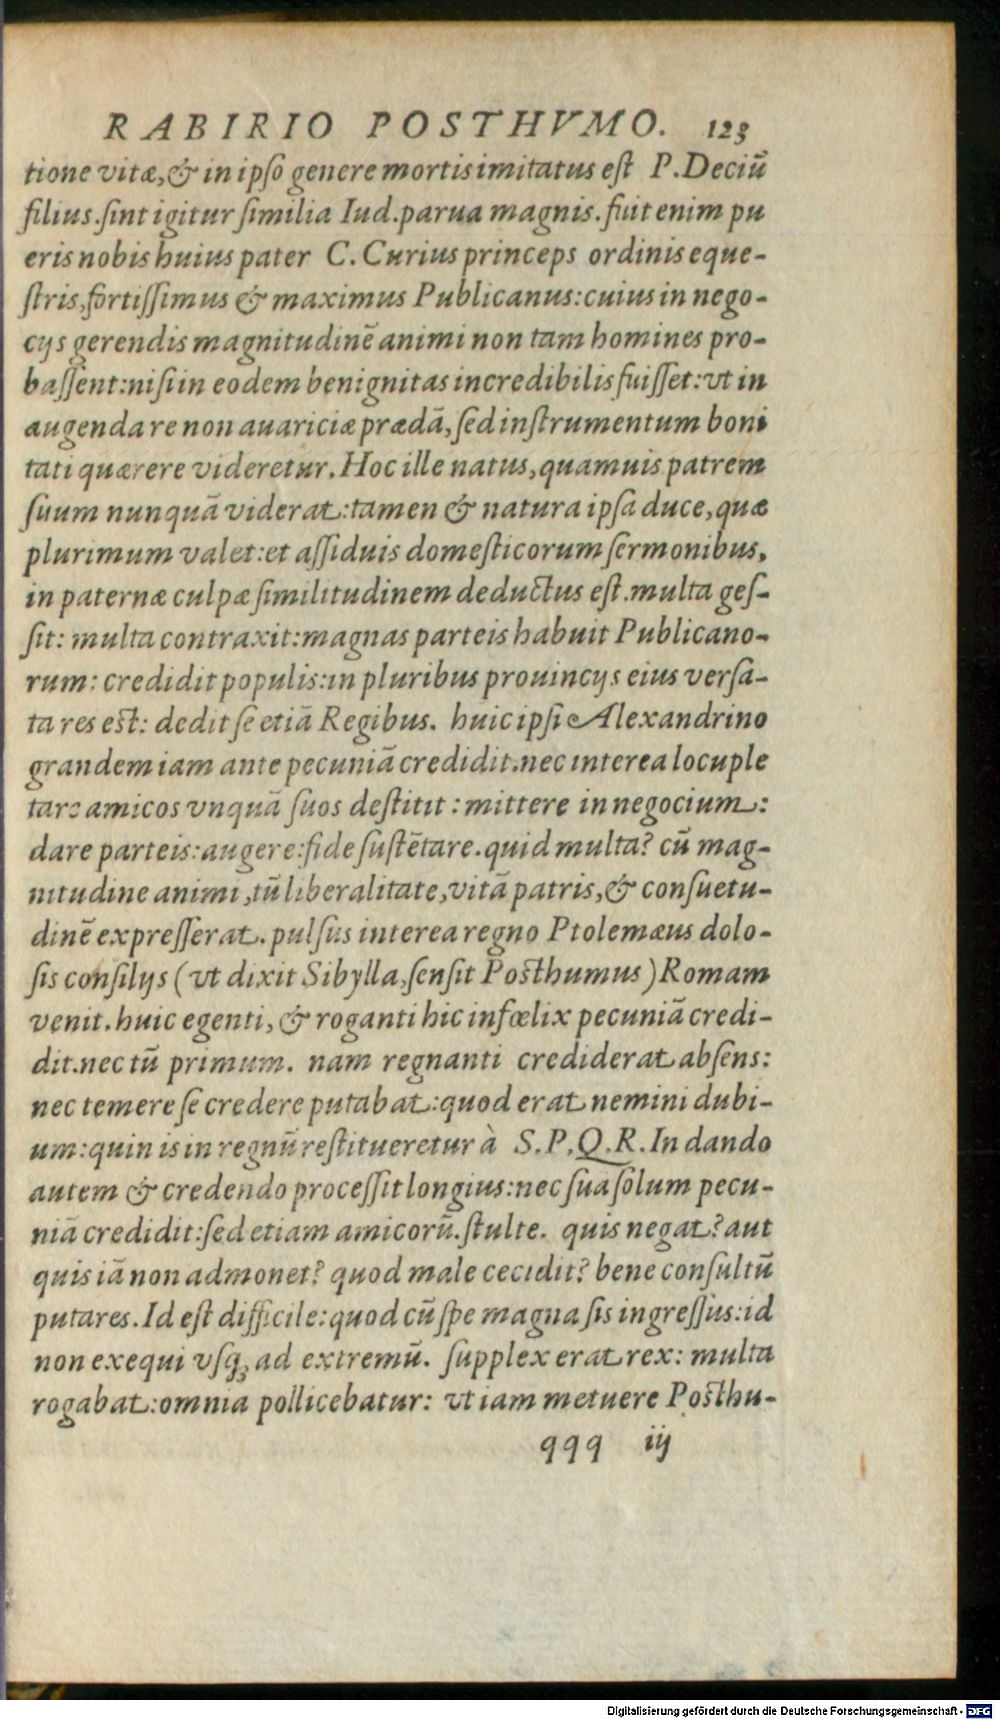 RABIRIO POSTHVMO. 123
tione vitæ, & in ipso genere mortis imitatus est P. Deciũ
filius. sint igitur similia Iud. parua magnis. fuit enim pu
eris nobis huius pater C. Curius princeps ordinis eque-
stris, fortissimus & maximus Publicanus: cuius in nego-
cijs gerendis magnitudinẽ animi non tam homines pro-
bassent: nisi in eodem benignitas incredibilis fuisset: vt in
augenda re non auariciæ prædã, sed instrumentum boni
tati quærere videretur. Hoc ille natus, quamuis patrem
suum nunquã viderat: tamen & natura ipsa duce, quæ
plurimum valet: et assiduis domesticorum sermonibus,
in paternæ culpæ similitudinem deductus est. multa ges-
sit: multa contraxit: magnas parteis habuit Publicano-
rum: credidit populis: in pluribus prouincijs eius versa-
ta res est: dedit se etiã Regibus. huic ipsi Alexandrino
grandem iam ante pecuniã credidit. nec interea locuple
tare amicos vnquã suos destitit: mittere in negocium:
dare parteis: augere: fide sustẽtare. quid multa? cũ mag-
nitudine animi, tũ liberalitate, vitã patris, & consuetu-
dinẽ expresserat. pulsus interea regno Ptolemæus dolo-
sis consilijs (vt dixit Sibylla, sensit Posthumus) Romam
venit. huic egenti, & roganti hic infœlix pecuniã credi-
dit. nec tũ primum. nam regnanti crediderat absens:
nec temere se credere putabat: quod erat nemini dubi-
um: quin is in regnũ restitueretur à S. P. Q. R. In dando
autem & credendo processit longius: nec sua solum pecu-
niã credidit: sed etiam amicorũ. stulte. quis negat? aut
quis iã non admonet? quod male cecidit? bene consultũ
putares. Id est difficile: quod cũ spe magna sis ingressus: id
non exequi vsq; ad extremũ. supplex erat rex: multa
rogabat: omnia pollicebatur: vt iam metuere Posthu-
qqq iij
Digitalisierung gefördert durch die Deutsche Forschungsgemeinschaft - DFG